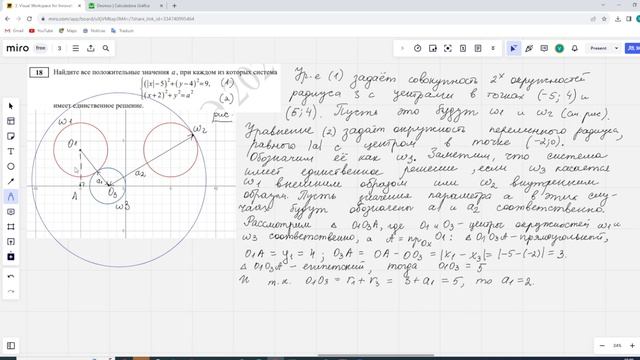 2. Visual Workspace for Innova
Desmos | Calculadora Gráfica
Gmail
YouTube
miro
3
Present
Share
18 Найдите все положительные значения a, при каждом из которых система
(|x|−5)²+(y−4)²=9, (1)
(x+2)²+y²=a² (2)
имеет единственное решение.
рис.
ω1
ω2
O1
a1
a2
A
O3
ω3
Ур-е (1) задаёт совокупность 2х окружностей
радиуса 3 с центрами в точках (-5; 4) и
(5; 4). Пусть это будут ω1 и ω2 (см рис).
Уравнение (2) задаёт окружность переменного радиуса,
равного |a| с центром в точке (-2;0).
Обозначим её как ω3. Заметим, что система
имеет единственное решение, если ω3 касается
ω1 внешним образом или ω2 внутренним
образом. Пусть значения параметра a в этих слу-
чаях будут обозначены a1 и a2 соответственно.
Рассмотрим △ O1O3A, где O1 и O3 - центры окружностей ω1 и
ω3 соответственно, а A = пр Ox O1: △ O1O3A - прямоугольный,
O1A = y1 = 4 ; O3A = OA - OO3 = |x1 - x3| = |-5-(-2)| = 3.
△ O1O3A - египетский, тогда O1O3 = 5
И т.к. O1O3 = r1 + r3 = 3 + a1 = 5, то a1 = 2.